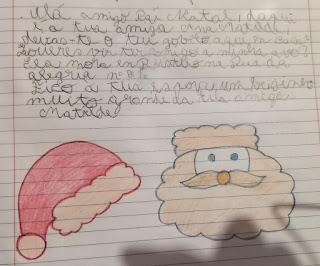 Olá amigo Pai Natal, daqui
é a tua amiga Matilde
deixas-te o teu gorro aqui em casa!
Queres vir ter comigo a minha avó?
Ela mora em na Rua da
alegria nº
Fico a tua espera um beijinho
muito grande da tua amiga
Matilde